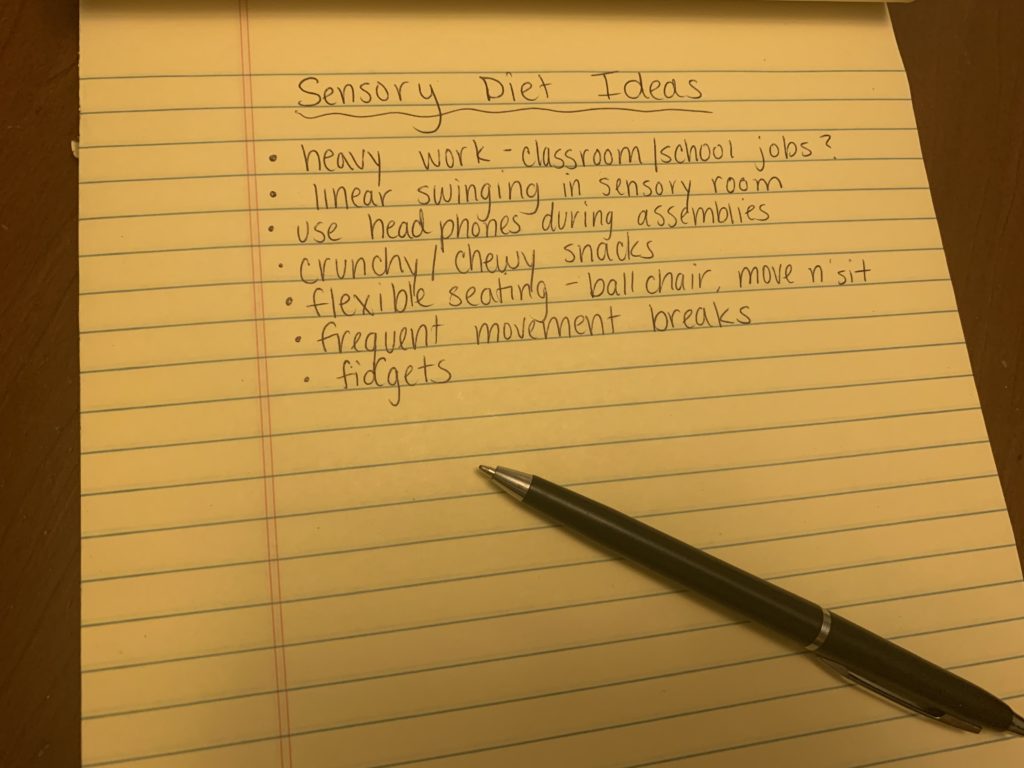 Sensory Diet Ideas
• heavy work - classroom/school jobs?
• linear swinging in sensory room
• use headphones during assemblies
• crunchy/chewy snacks
• flexible seating - ball chair, move n' sit
• frequent movement breaks
• fidgets